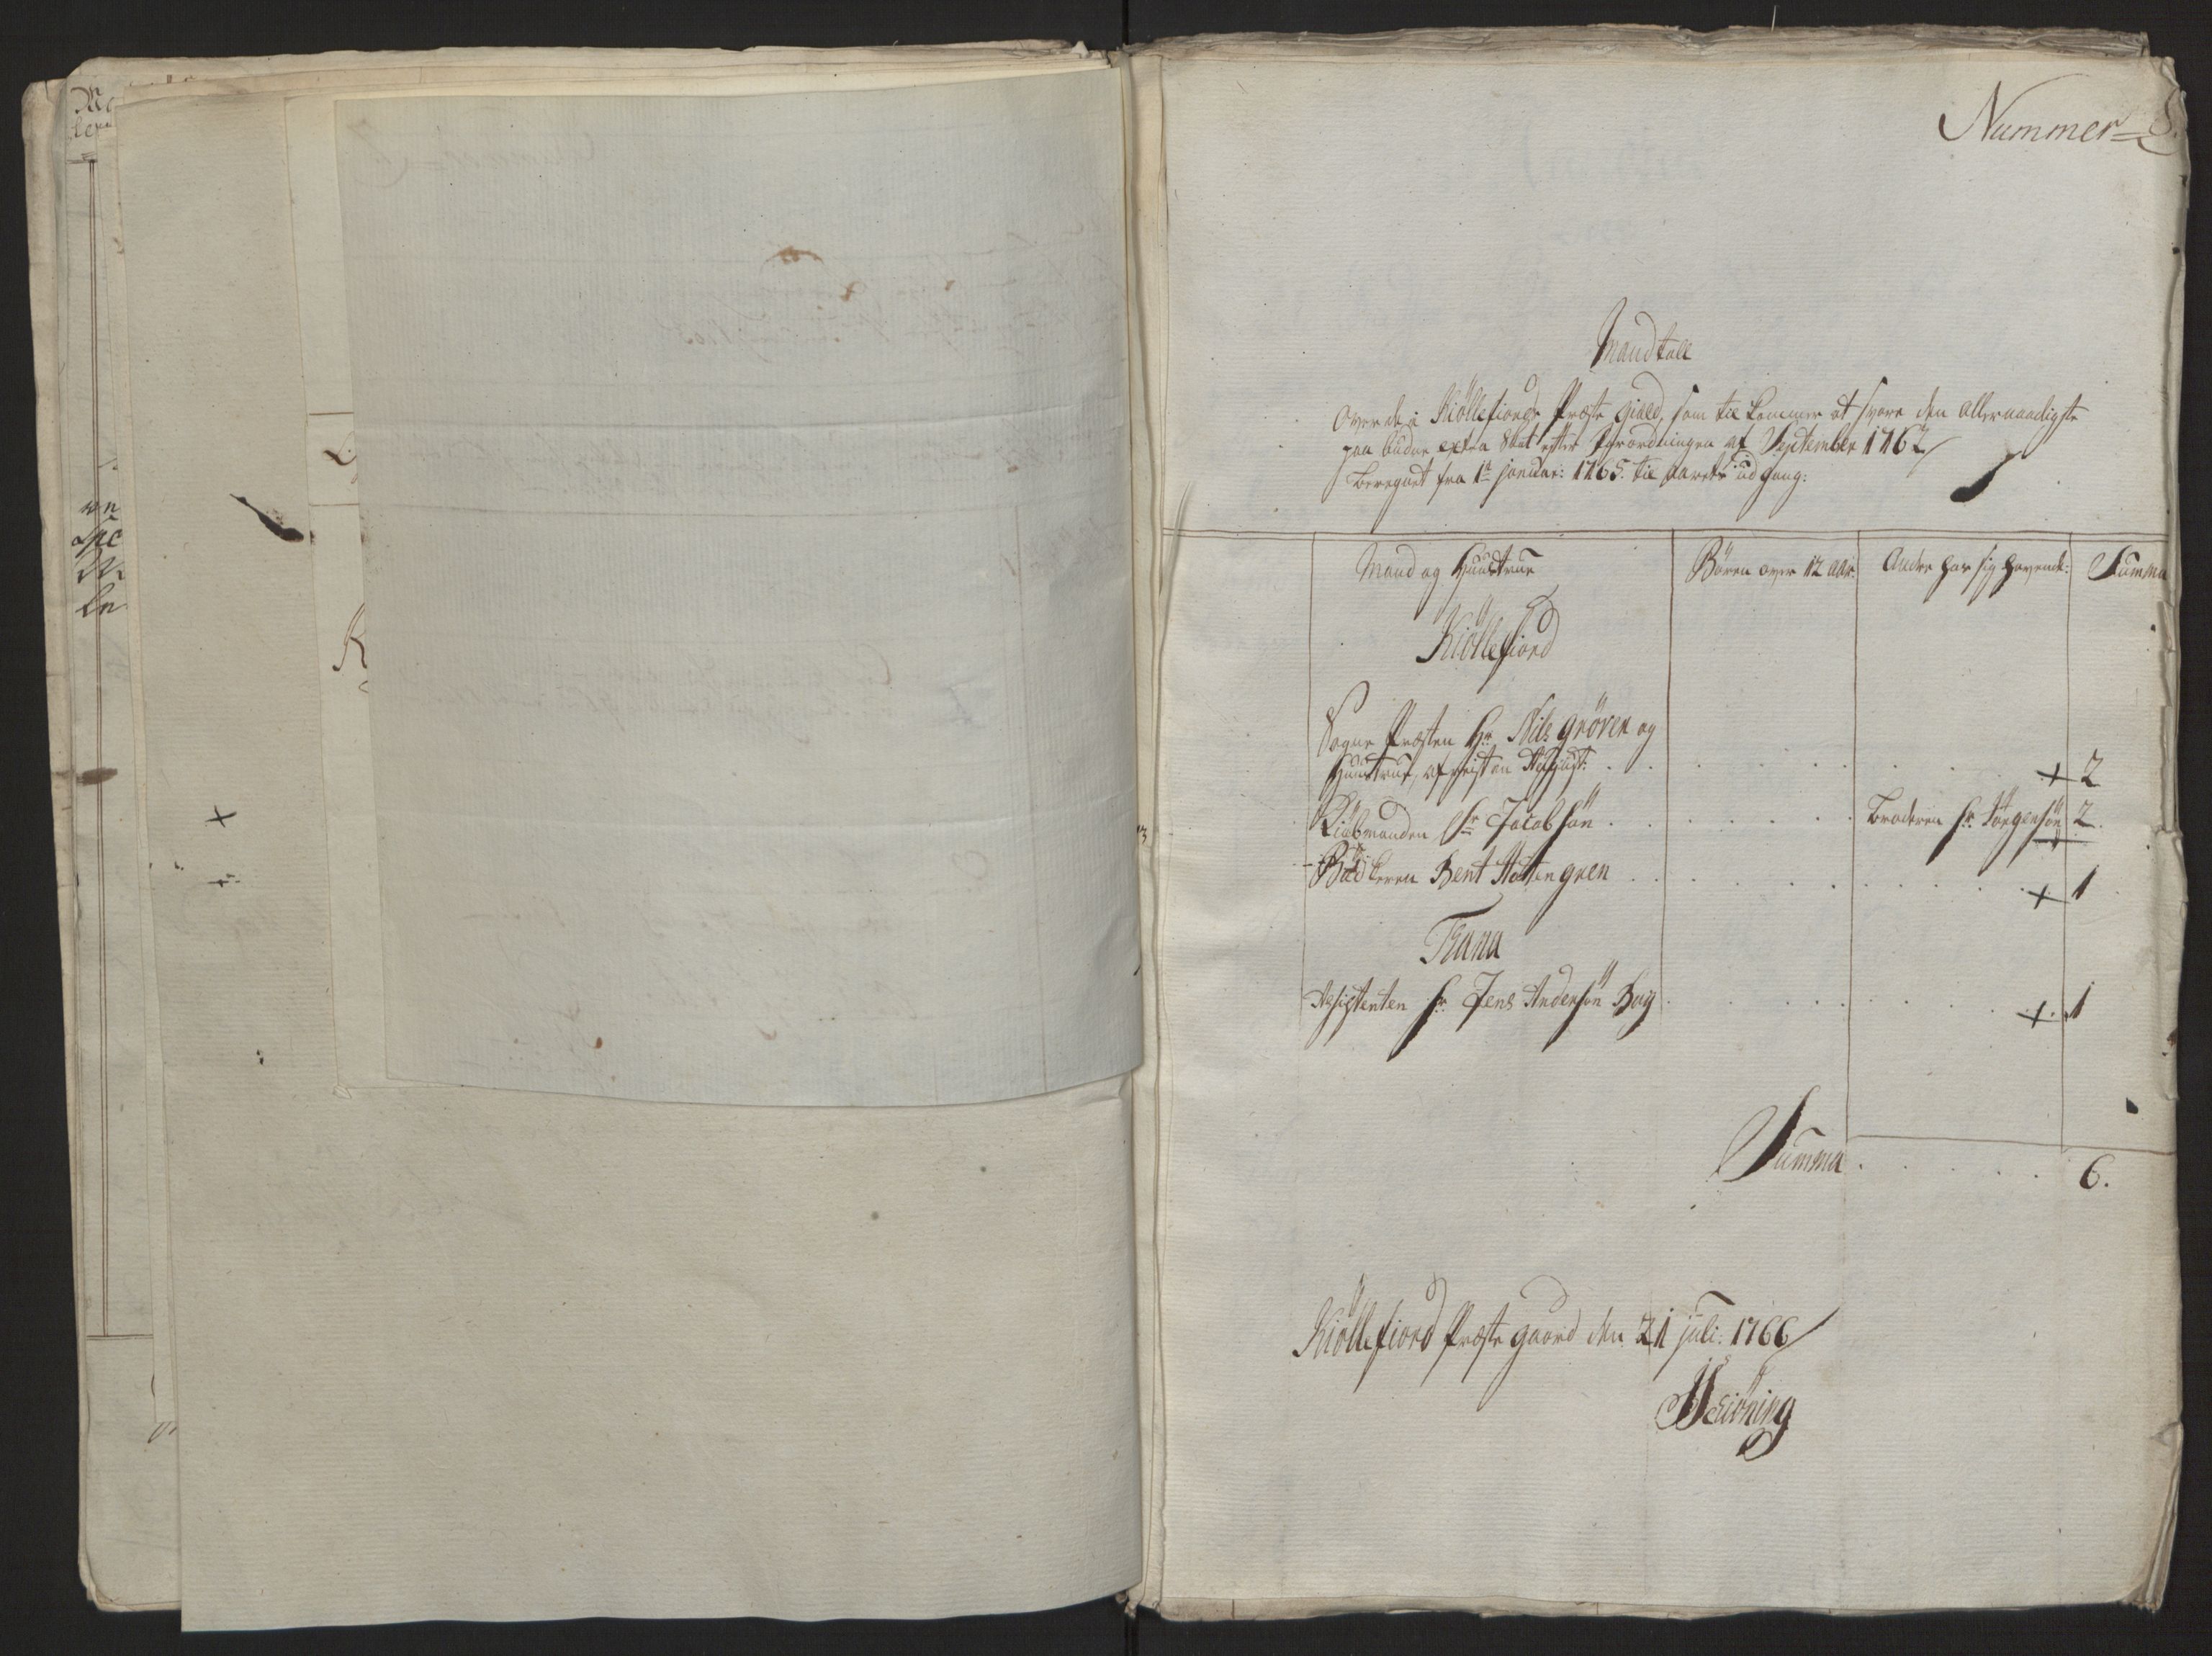 Nummer = 8.
Mandtall
Over de i Kiöllefiords Præste Giæld, som til kommer at svare den allernaadigste
paa budne extra Skat efter Forordningen af September 1762
beregnet fra 1te januar: 1765. til Aarets udgang:
Mand og Huustrue
Börn over 12 aar:
Andre hos sig havende:
Summa
Kiöllefiord
Sogne Præsten Hr Nils Gröven og
Huustrue, afreist in August: + 2
Kiöbmanden Sr Jacobsön
broderen Sr Jörgensön 2.
Bödkeren Bent Stottengren + 1
Tana
Assistenten Sr. Jens Andersön Buy + 1
Summa 6.
Kiöllefiord Præste gaard den 21 juli: 1766